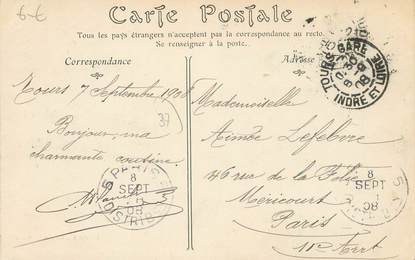 6-6
Carte Postale
Tous les pays étrangers n'acceptent pas la correspondance au recto.
Se renseigner à la poste.
Correspondance
Adresse
Tours 7 Septembre 1908
37
Bonjour, ma
charmante cousine.
Mademoiselle
Aimée Lefebvre
46 rue de la Folie
Méricourt
Paris
11e Arrt
TOURS GARE
INDRE ET LOIRE
PARIS
8
SEPT
08
DISTRIB
8
SEPT
08